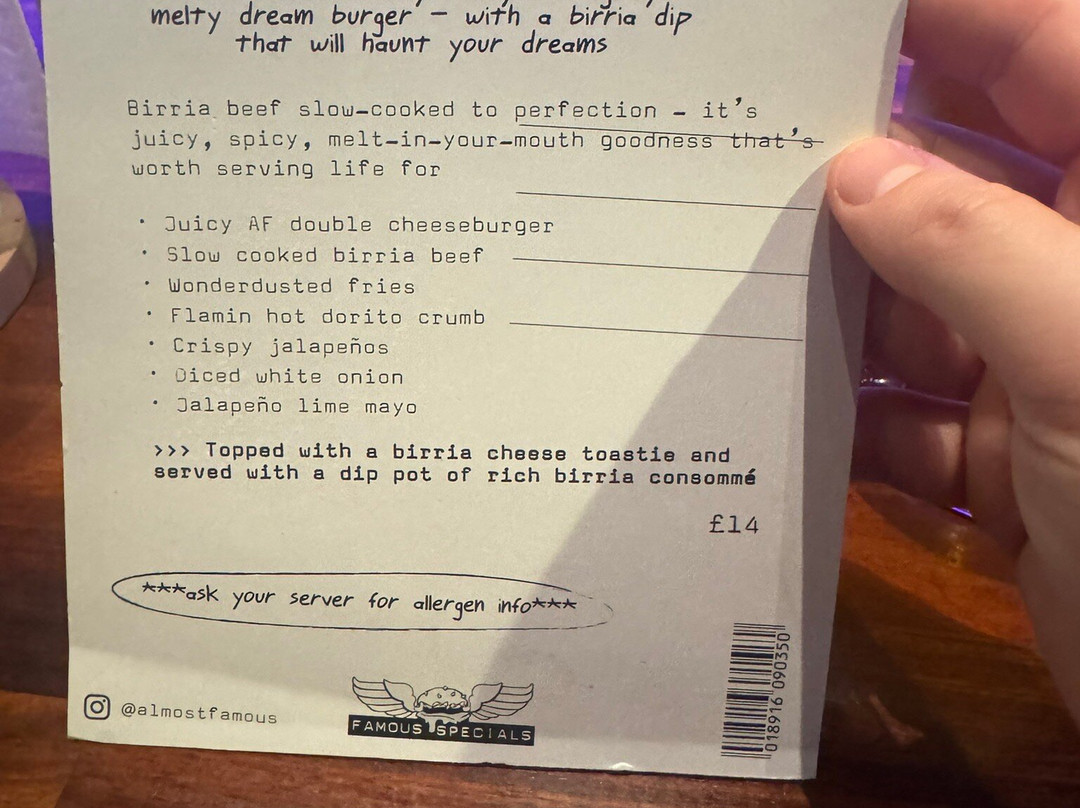 melty dream burger – with a birria dip
that will haunt your dreams
Birria beef slow-cooked to perfection – it's
juicy, spicy, melt-in-your-mouth goodness that's
worth serving life for
· Juicy AF double cheeseburger
· Slow cooked birria beef
· Wonderdusted fries
· Flamin hot dorito crumb
· Crispy jalapeños
· Diced white onion
· Jalapeño lime mayo
>>> Topped with a birria cheese toastie and
served with a dip pot of rich birria consommé
£14
***ask your server for allergen info***
@almostfamous
FAMOUS SPECIALS
018916 090350